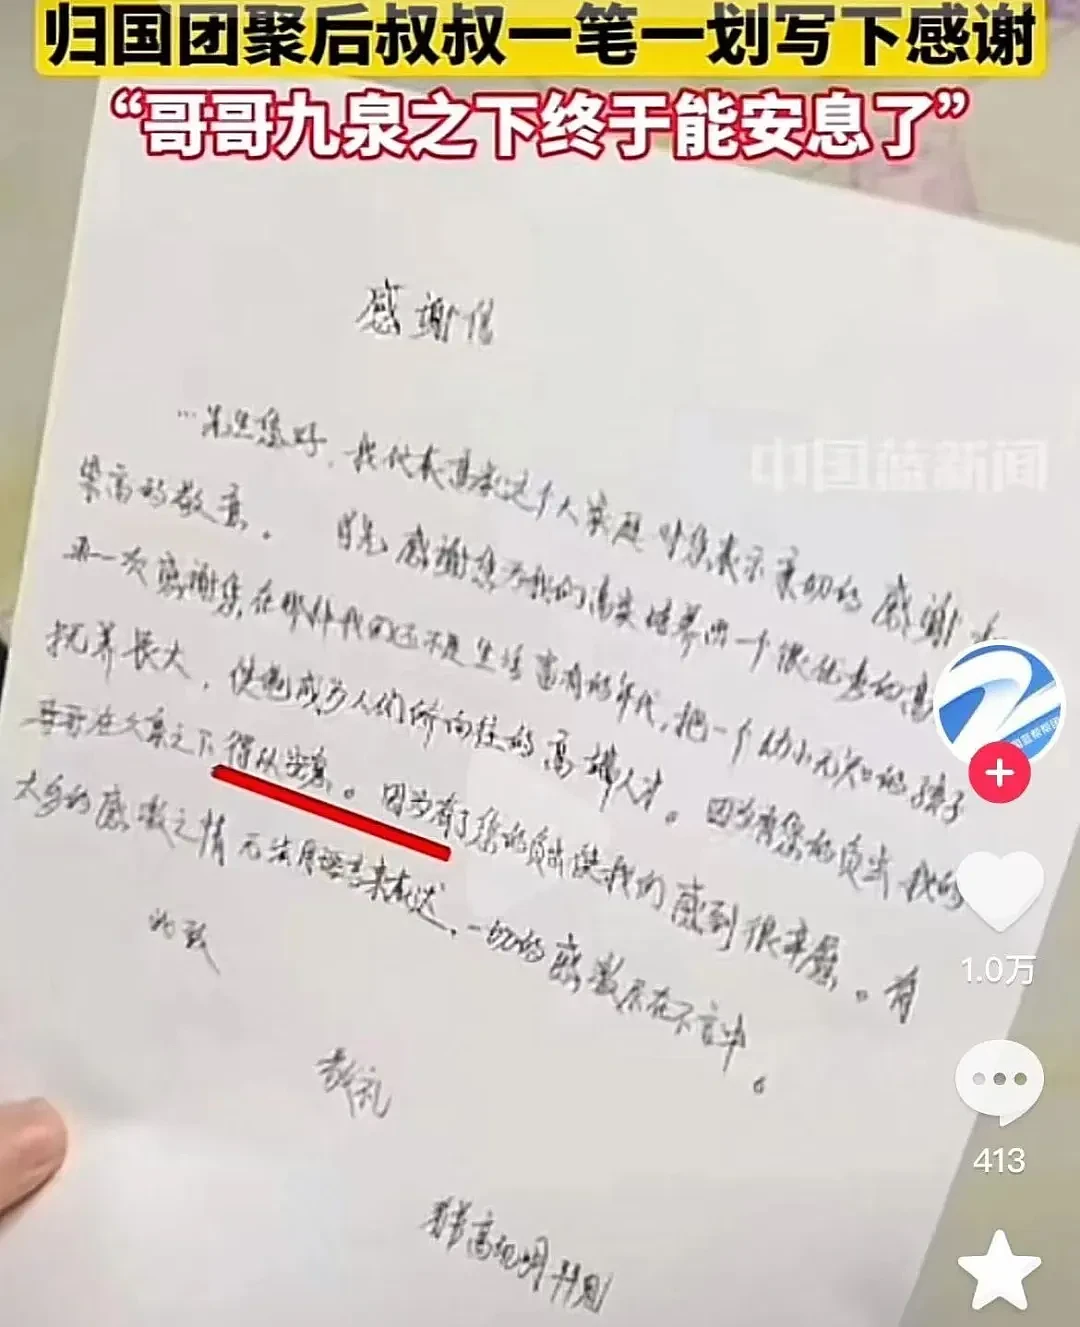 归国团聚后叔叔一笔一划写下感谢
“哥哥九泉之下终于能安息了”
感谢信
…先生您好，我代表高家这个大家庭对您表示亲切的感谢和
崇高的敬意。首先感谢您为我们高家培养出一个很优秀的高
再一次感谢您在那个我们还不是生活富有的年代，把一个幼小无知的孩子
抚养长大，使他成为人们所向往的高端人才。因为有您的负出，我的
哥哥在久泉之下得以安息。因为有了您的负出使我们感到很幸慰。有
太多的感激之情无法用语言来表达，一切的感激尽在不言中。
此致
敬礼
中国蓝新闻
1.0万
413